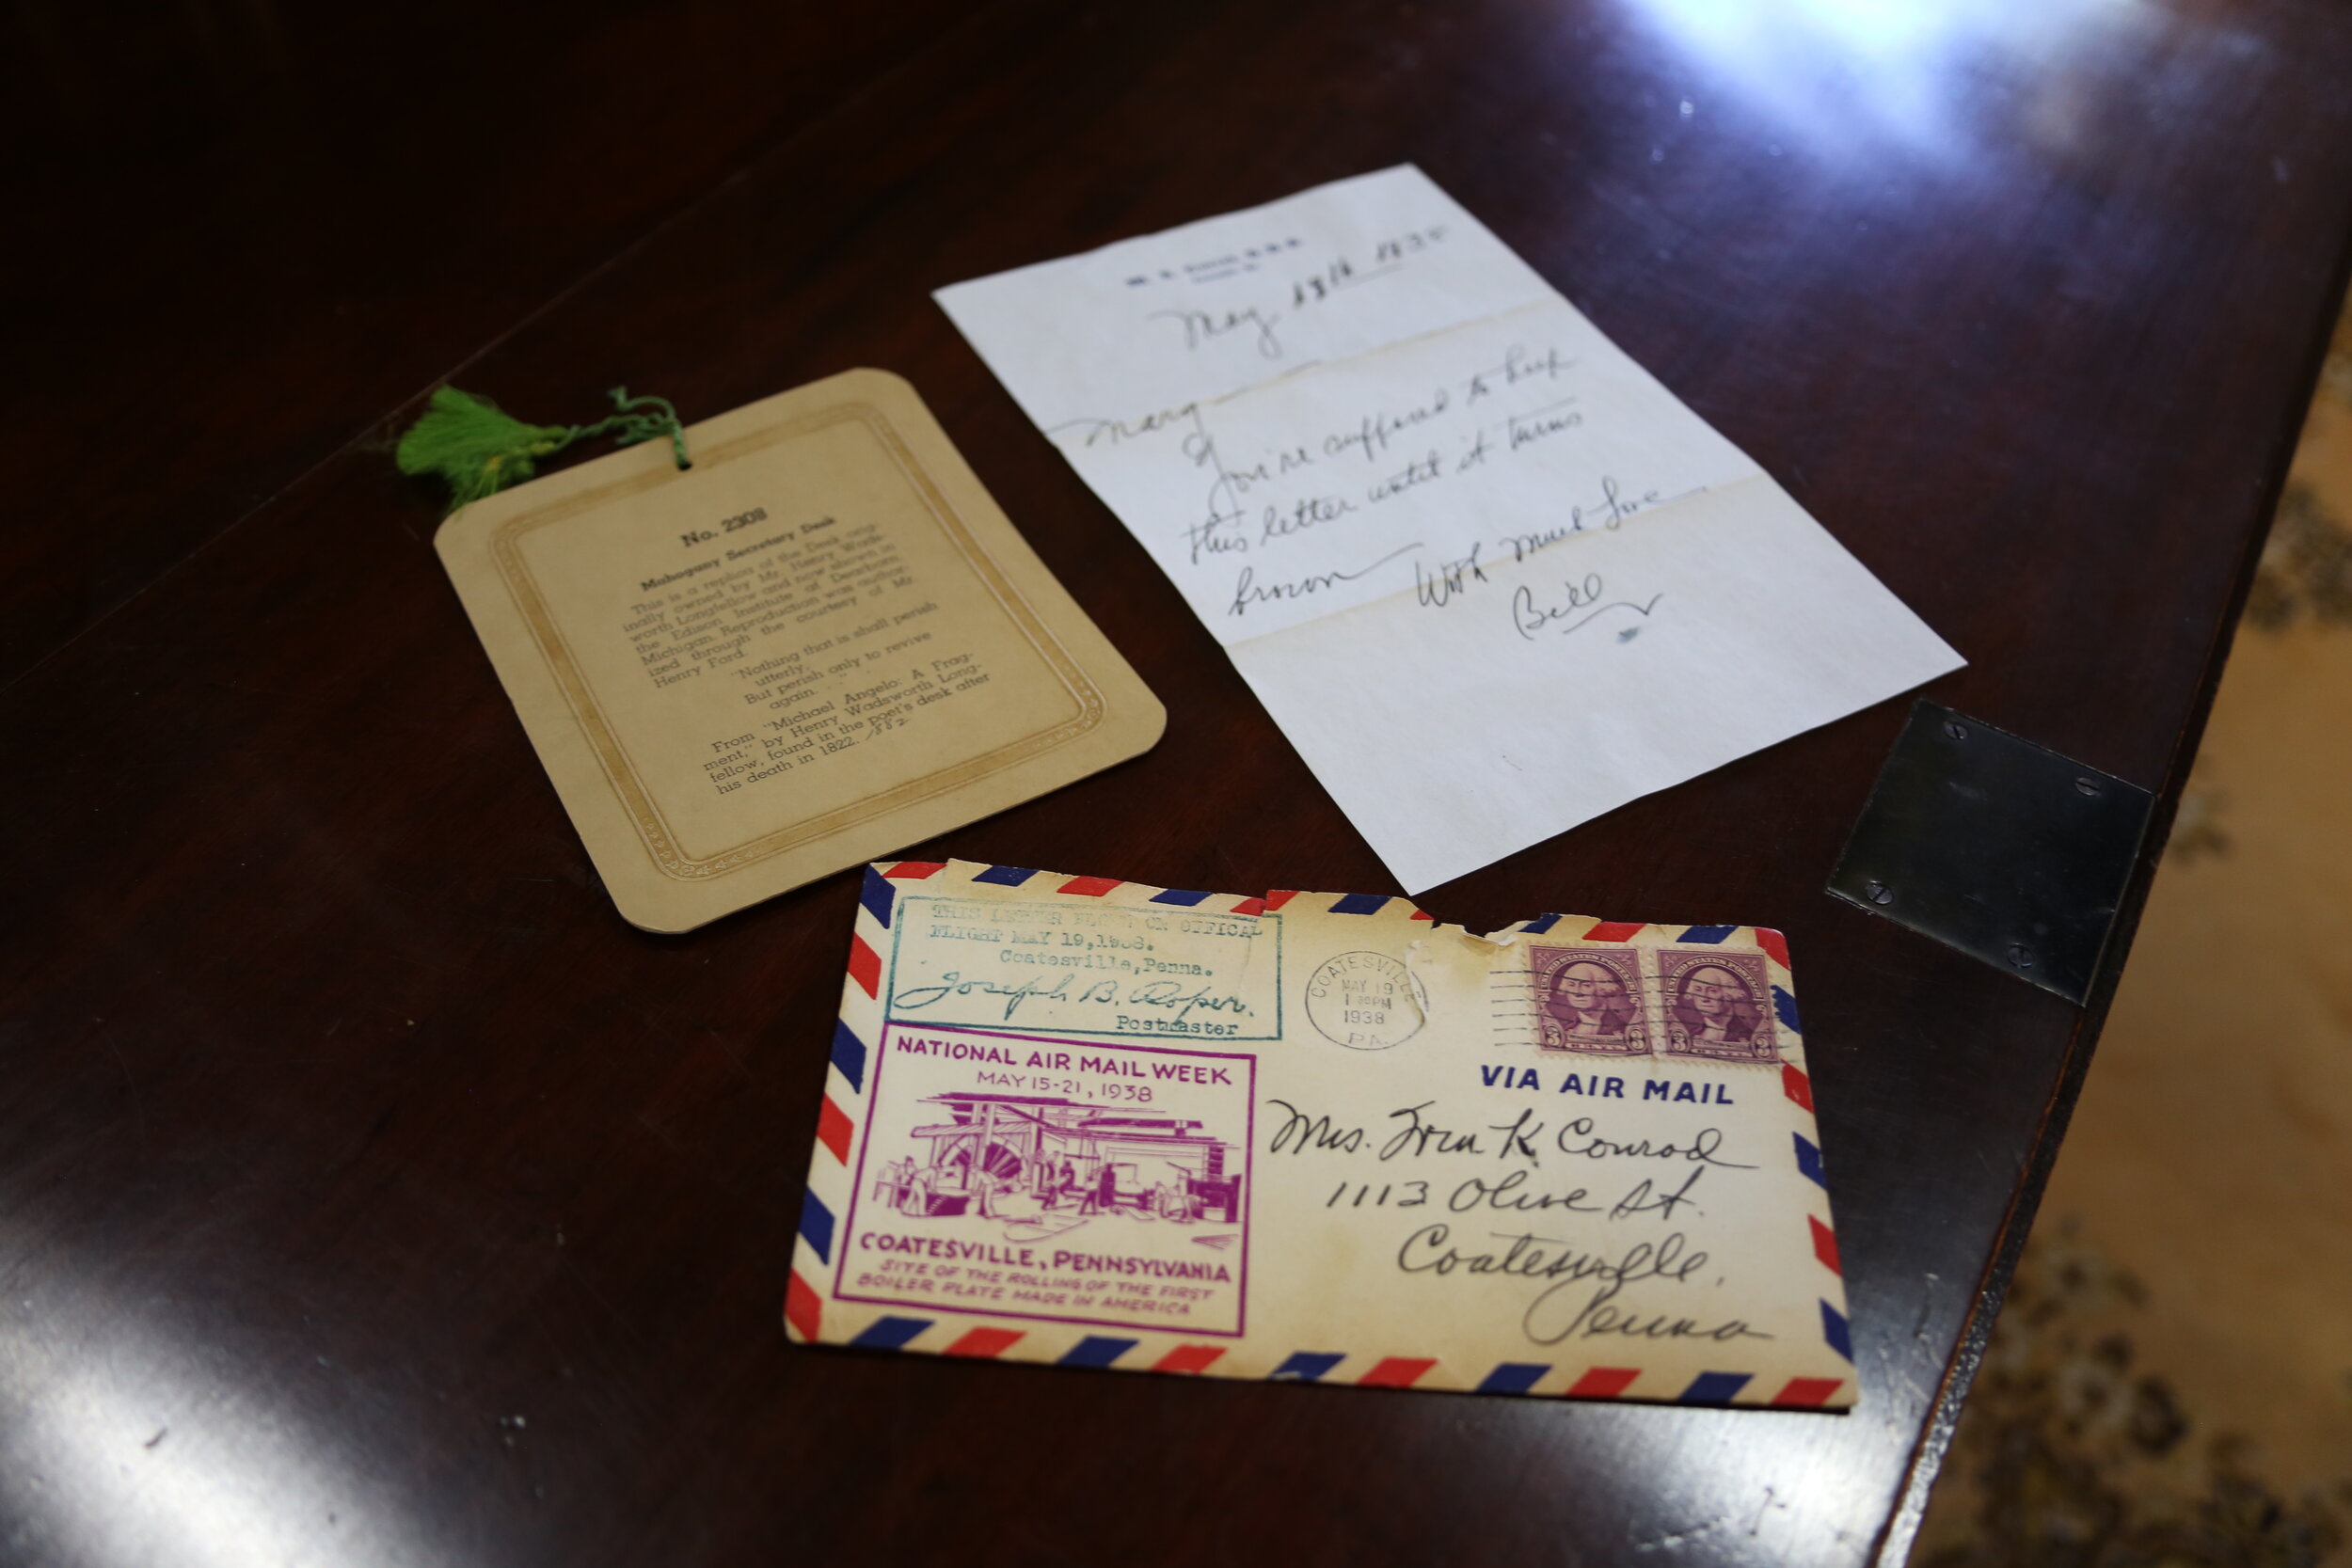 No. 2308
Mahogany Secretary Desk
This is a replica of the Desk orig-
inally owned by Mr. Henry Wads-
worth Longfellow and now shown in
the Edison Institute of Dearborn,
Michigan. Reproduction was author-
ized through the courtesy of Mr.
Henry Ford.
"Nothing that is shall perish
utterly,
But perish only to revive
again. . ."
From "Michael Angelo: A Frag-
ment," by Henry Wadsworth Long-
fellow, found in the poet's desk after
his death in 1822. 1882
May 18th
Mary
You're suffered to keep
this letter until it turns
brown
With Much Love
Bill
THIS LETTER ON OFFICAL
FLIGHT MAY 19,1938.
Coatesville,Penna.
Joseph B. Roper.
Postmaster
NATIONAL AIR MAIL WEEK
MAY 15-21, 1938
COATESVILLE, PENNSYLVANIA
SITE OF THE ROLLING OF THE FIRST
BOILER PLATE MADE IN AMERICA
COATESVILLE
MAY 19
1 30 PM
1938
PA.
UNITED STATES POSTAGE
3 CENTS 3
UNITED STATES POSTAGE
3 CENTS 3
VIA AIR MAIL
Mrs. Wm K. Conrad
1113 Olive St.
Coatesville,
Penna